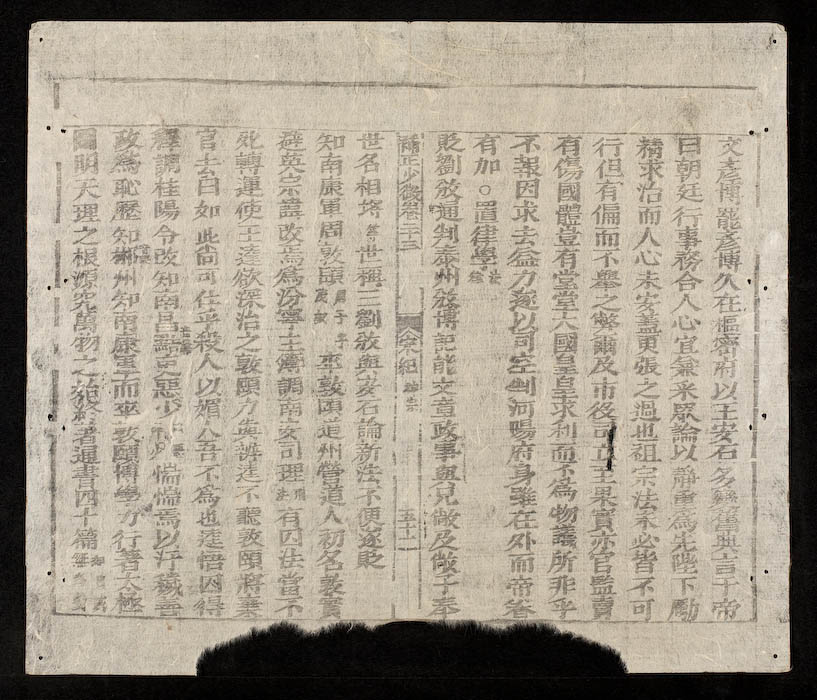 文彥博罷彥博久在樞密府以王安石多變舊典言于帝
曰朝廷行事務合人心宜兼采眾論以靜重為先陛下勵
精求治而人心未安蓋更張之過也祖宗法未必皆不可
行但有偏而不舉之弊爾及市役司立至果實亦官監賣
有傷國體豈有堂堂大國皇皇求利而不為物議所非乎
不報因求去益力遂以司空判河陽府身雖在外而帝眷
有加○置律學
貶劉攽通判泰州攽博記能文章政事與兄敞及敞子奉
補正少微卷二十三 宋紀 神宗 五十一
世名相埒 世稱三劉攽與安石論新法不便遂貶
知南康軍周敦頤 卒敦頤道州營道人初名敦實
避英宗諱改焉為汾寧主簿調南安司理 有囚法當不
死轉運使王逵欲深治之敦頤力與辨逵不聽敦頤將棄
官去曰如此尚可仕乎殺人以媚人吾不為也逵悟囚得
釋調桂陽令改知南昌 惡少 惴惴焉以汙穢善
政為恥歷知郴州知南康軍而卒敦頤博學力行著太極
圖明天理之根源究萬物之終始著通書四十篇